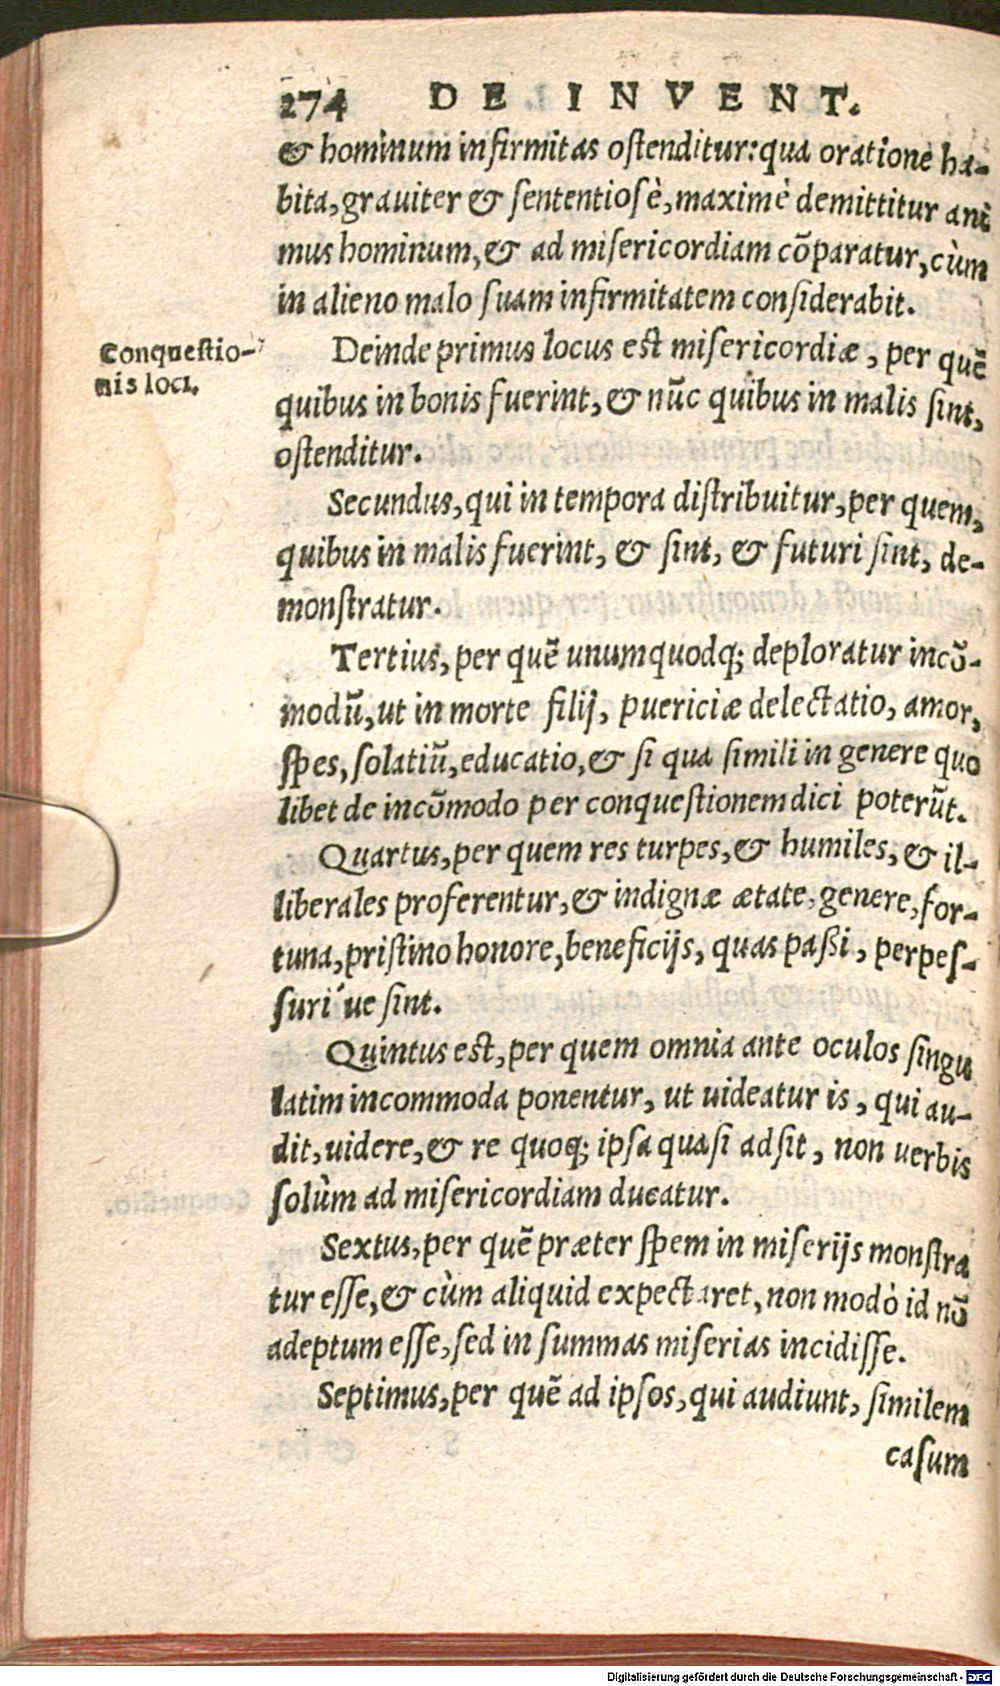 274 DE INVENT.
& hominum infirmitas ostenditur: qua oratione ha-
bita, grauiter & sententiosè, maximè demittitur ani
mus hominum, & ad misericordiam cōparatur, cùm
in alieno malo suam infirmitatem considerabit.
Conquestio-
nis loci.
Deinde primus locus est misericordiæ, per quē
quibus in bonis fuerint, & nūc quibus in malis sint,
ostenditur.
Secundus, qui in tempora distribuitur, per quem,
quibus in malis fuerint, & sint, & futuri sint, de-
monstratur.
Tertius, per quē unumquodq; deploratur incō-
modū, ut in morte filij, puericiæ delectatio, amor,
spes, solatiū, educatio, & si qua simili in genere quo
libet de incōmodo per conquestionem dici poterūt.
Quartus, per quem res turpes, & humiles, & il-
liberales proferentur, & indignæ ætate, genere, for-
tuna, pristino honore, beneficijs, quas passi, perpes-
suri´ue sint.
Quintus est, per quem omnia ante oculos singu
latim incommoda ponentur, ut uideatur is, qui au-
dit, uidere, & re quoq; ipsa quasi adsit, non uerbis
solùm ad misericordiam ducatur.
Sextus, per quē præter spem in miserijs monstra
tur esse, & cùm aliquid expectaret, non modò id nō
adeptum esse, sed in summas miserias incidisse.
Septimus, per quē ad ipsos, qui audiunt, similem
casum
Digitalisierung gefördert durch die Deutsche Forschungsgemeinschaft - DFG